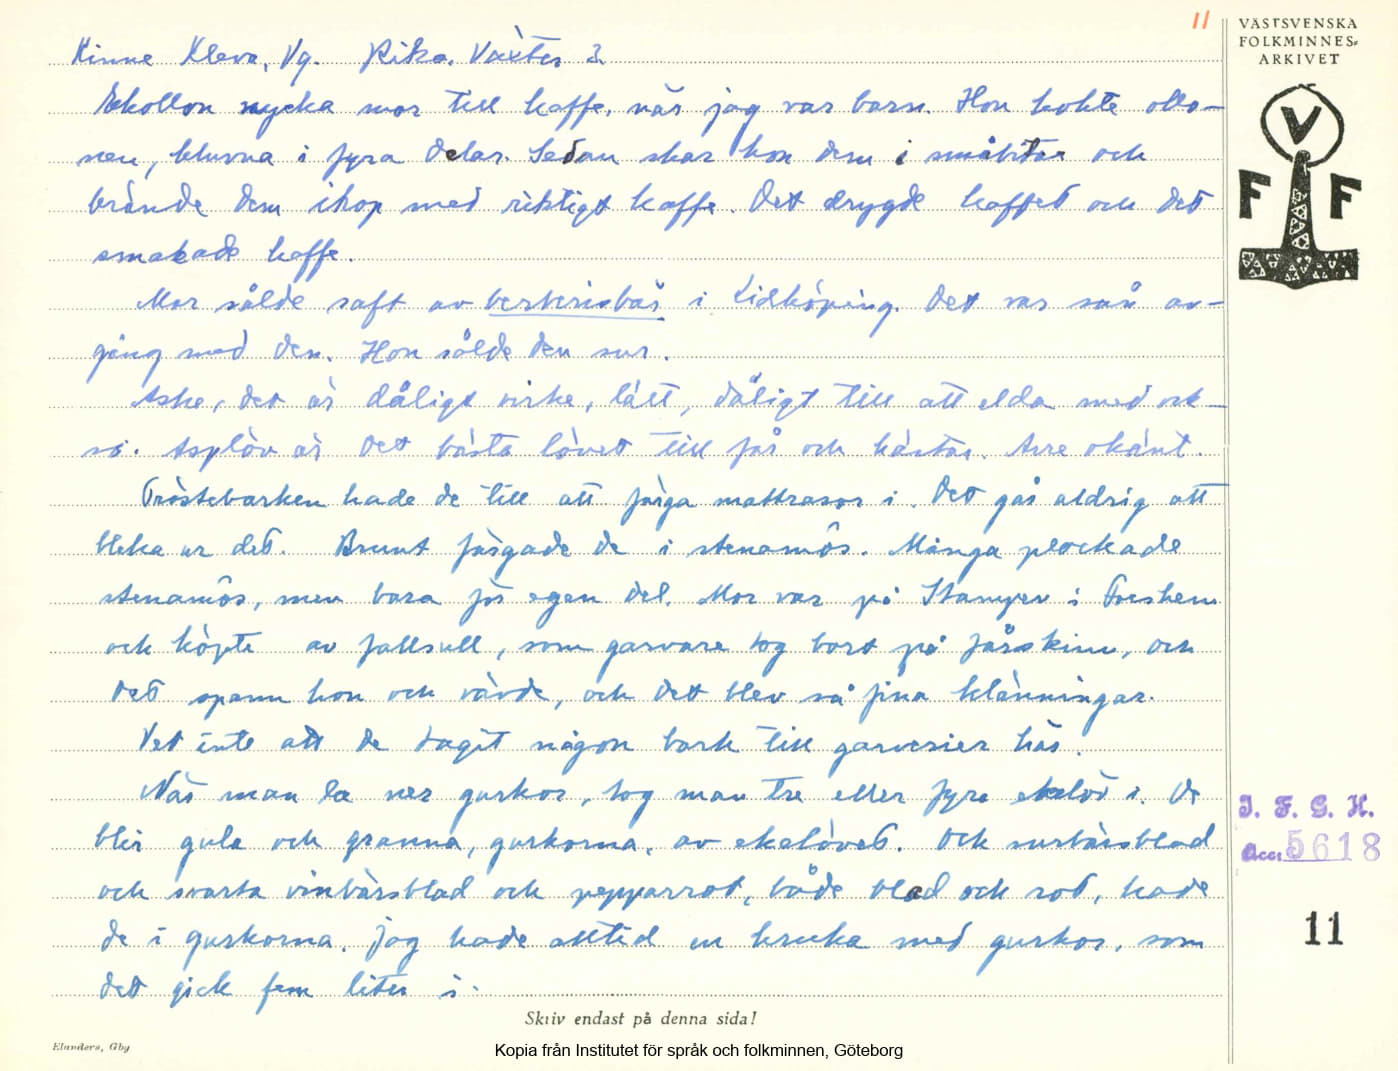 11
VÄSTSVENSKA
FOLKMINNES-
ARKIVET
V
F F
Kinne Kleva, Vg. Rika. Växter 3.
Ekollon nycka mor till kaffe, när jag var barn. Hon kokte ollo-
nen, kluvna i fyra delar. Sedan skar hon dem i småbitar och
brände dem ihop med riktigt kaffe. Det drygde kaffet och det
smakade kaffe.
Mor sålde saft av berberisbär i Lidköping. Det var sån av-
gång med den. Hon sålde den sur.
Aske, det är dåligt virke, lätt, dåligt till att elda med ock-
så. Asplöv är det bästa lövet till får och hästar. Arre okänt.
Tröstebarken hade de till att färga mattrasor i. Det går aldrig att
bleka ur det. Brunt färgade de i stenamôs. Många plockade
stenamôs, men bara för egen del. Mor var på Stampen i Forshem
och köpte av fallull, som garvare tog bort på fårskinn, och
det spann hon och vävde, och det blev så fina klänningar.
Vet inte att de tagit någon bark till garverier här.
När man la ner gurkor, tog man tre eller fyra ekelöv i. De
blir gula och granna, gurkorna, av ekelövet. Och surbärsblad
och svarta vinbärsblad och pepparrot, både blad och rot, hade
de i gurkorna. Jag hade alltid en kruka med gurkor, som
det gick fem liter i.
I. F. G. H.
Acc. 5618
11
Skriv endast på denna sida!
Elanders, Gbg
Kopia från Institutet för språk och folkminnen, Göteborg